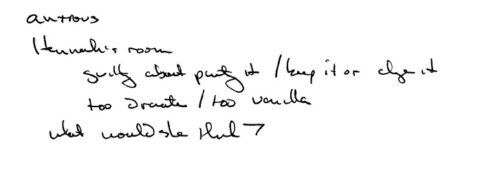 anxious
Hannah's room
guilty about it / keep it or change it
too dramatic / too vanilla
what would she think?